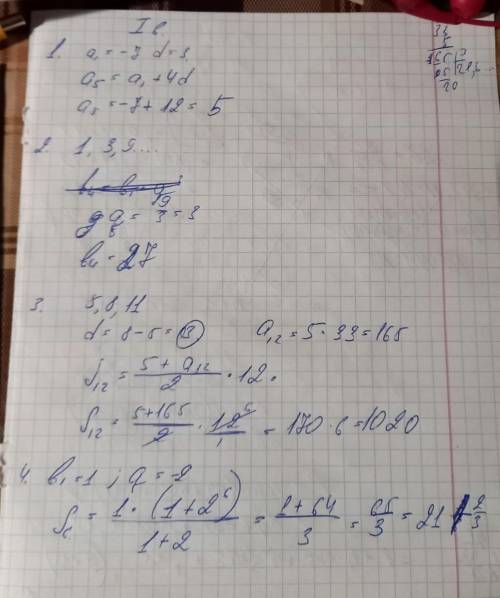 I в.
1. a₁ = -7 d = 3.
a₅ = a₁ + 4d
a₅ = -7 + 12 = 5
2. 1, 3, 9....
q = 9/3 = 3
b₄ = 27
3. 5, 8, 11
d = 8 - 5 = 3 a₁₂ = 5 · 33 = 165
S₁₂ = (5 + a₁₂)/2 · 12.
S₁₂ = (5+165)/2 · 12/1 = 170 · 6 = 1020
4. b₁ = 1 ; q = -2
S₆ = 1 · (1 + 2⁶)/(1 + 2) = (1 + 64)/3 = 65/3 = 21 2/3